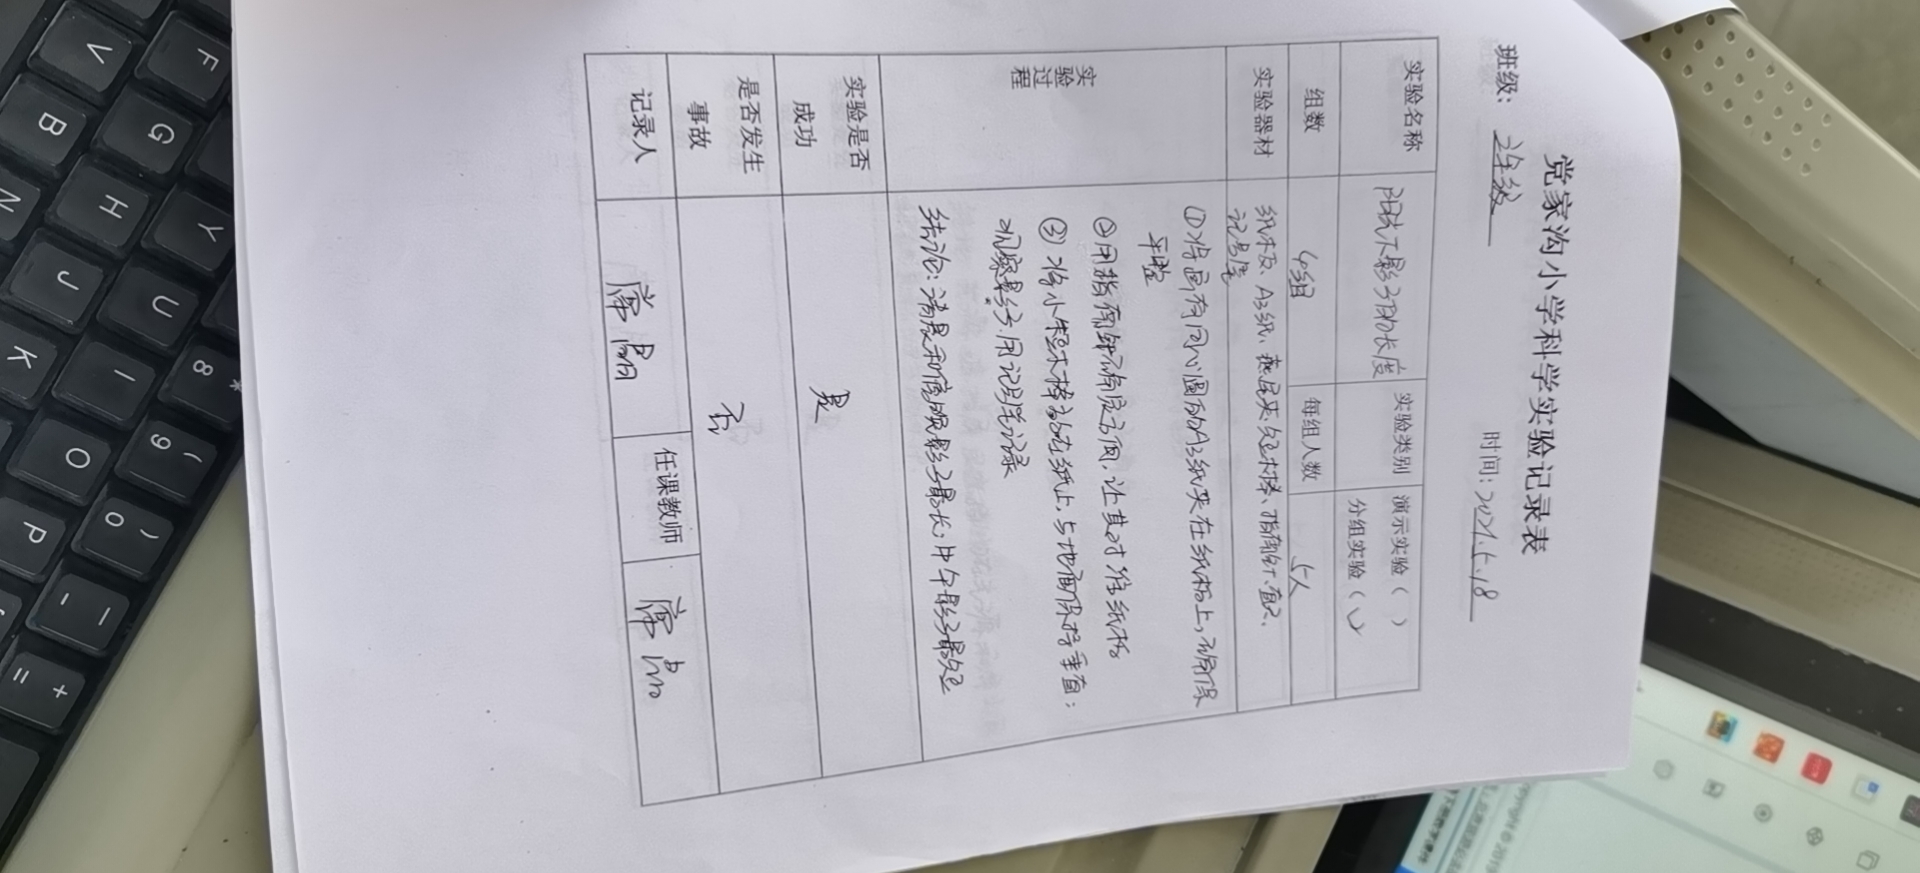 党家沟小学科学实验记录表
班级: 三年级 时间: 2021.5.18
实验名称 阳光下影子的长度 实验类别 演示实验 ( )
分组实验 (√)
组数 4组 每组人数 5人
实验器材 纸板、A3纸、燕尾夹、短木棒、指南针、
记号笔
实验过程
①将画有同心圆的A3纸夹在纸板上,确保
平整
②用指南针确定方向,让其对准纸板
③将小短木棒立在纸上,与地面保持垂直;
观察影子,用记号笔记录
结论:清晨和傍晚影子最长,中午影子最短
实验是否成功 是
是否发生事故 否
记录人 任课教师
F G H J K V B N Y U I O P 8 * 9 ( 0 ) - = +